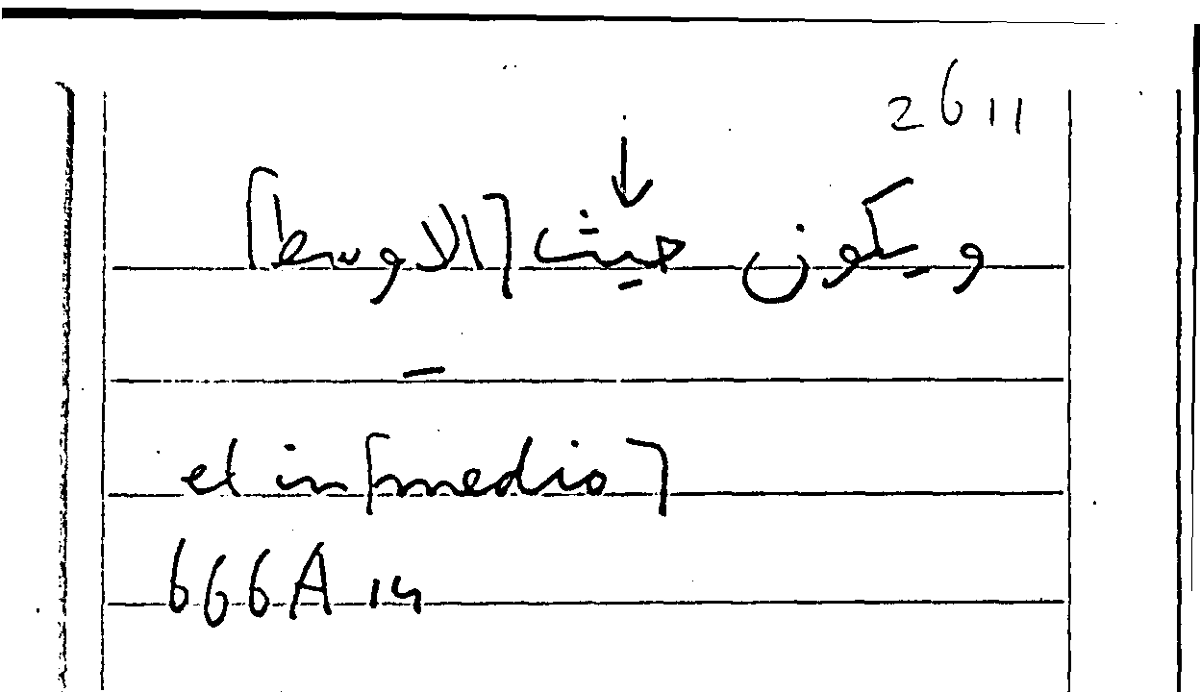 2611
ويكون حيث [الاوسط]
et in [medio]
666A 14